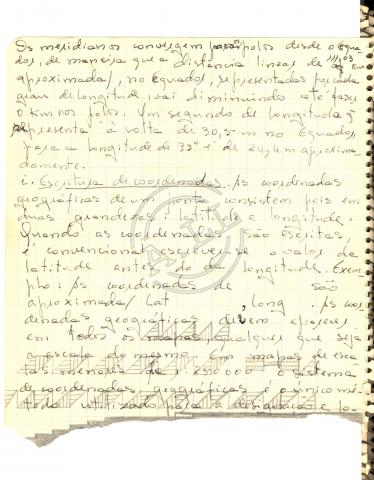 Os meridianos convergem para os polos desde o Equa-
dor, de maneira que a distância linear de 111,03 Km
aproximada/, no Equador, representadas por cada
grau de longitude, vai diminuindo até fazer
0 Km nos polos. Um segundo de longitude
representa à volta de 30,5 m no Equador,
para a longitude de 33º é de 24,4 m aproxima-
damente.
i. Escritura de coordenadas. As coordenadas
geográficas de um ponto consistem pois em
duas grandezas: latitude e longitude.
Quando as coordenadas são escritas,
é convencional escrever-se o valor da
latitude antes do da longitude. Exem
plo: As coordenadas de são
aproximada/ Lat , Long . As coor-
denadas geográficas devem aparecer
em todos os mapas qualquer que seja
a escala do mesmo. Em mapas de esca
las menores de 1:250000 o sistema
de coordenadas geográficas é o único mé-
todo utilizado para a designação e lo-